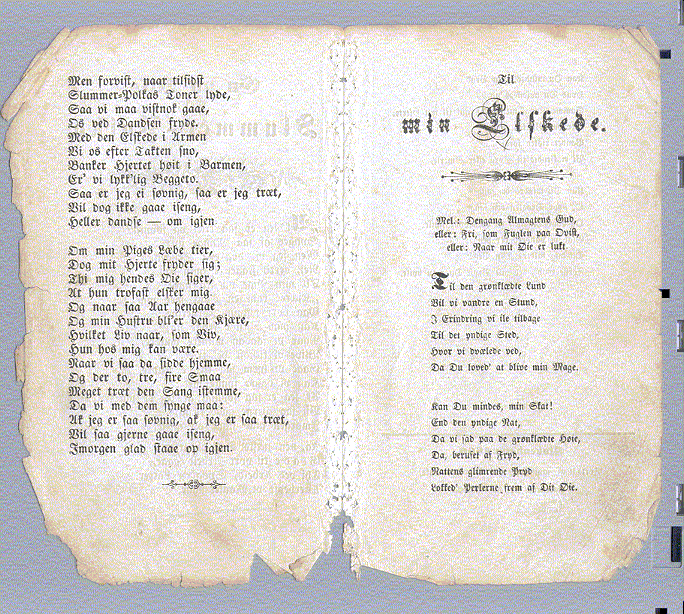 Men forvist, naar tilsidst
Slummer-Polkas Toner lyde,
Saa vi maa vistnok gaae,
Os ved Dandsen fryde.
Med den Elskede i Armen
Vi os efter Takten sno,
Banker Hjertet høit i Barmen,
Er' vi lykk'lig Beggeto.
Saa er jeg ei søvnig, saa er jeg træt,
Vil dog ikke gaae iseng,
Heller dandse — om igjen
Om min Piges Læbe tier,
Dog mit Hjerte fryder sig;
Thi mig hendes Øie siger,
At hun trofast elsker mig.
Og naar saa Aar hengaae
Og min Hustru bli'er den Kjære,
Hvilket Liv naar, som Viv,
Hun hos mig kan være.
Naar vi saa da sidde hjemme,
Og der to, tre, fire Smaa
Meget træt den Sang istemme,
Da vi med dem synge maa:
Ak jeg er saa søvnig, ak jeg er saa træt,
Vil saa gjerne gaae iseng,
Imorgen glad staae op igjen.
Til
min Elskede.
Mel.: Dengang Almagtens Gud,
eller: Fri, som Fuglen paa Qvist,
eller: Naar mit Øie er lukt
Til den grønklædte Lund
Vil vi vandre en Stund,
I Erindring vi ile tilbage
Til det yndige Sted,
Hvor vi dvælede ved,
Da Du loved' at blive min Mage.
Kan Du mindes, min Skat!
End den yndige Nat,
Da vi sad paa de grønklædte Høie,
Da, beruset af Fryd,
Nattens glimrende Pryd
Lokked' Perlerne frem af Dit Øie.